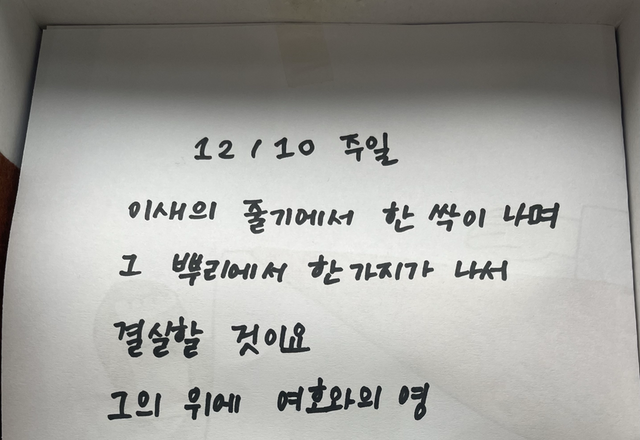 12/10 주일
이새의 줄기에서 한 싹이 나며
그 뿌리에서 한 가지가 나서
결실할 것이요
그의 위에 여호와의 영